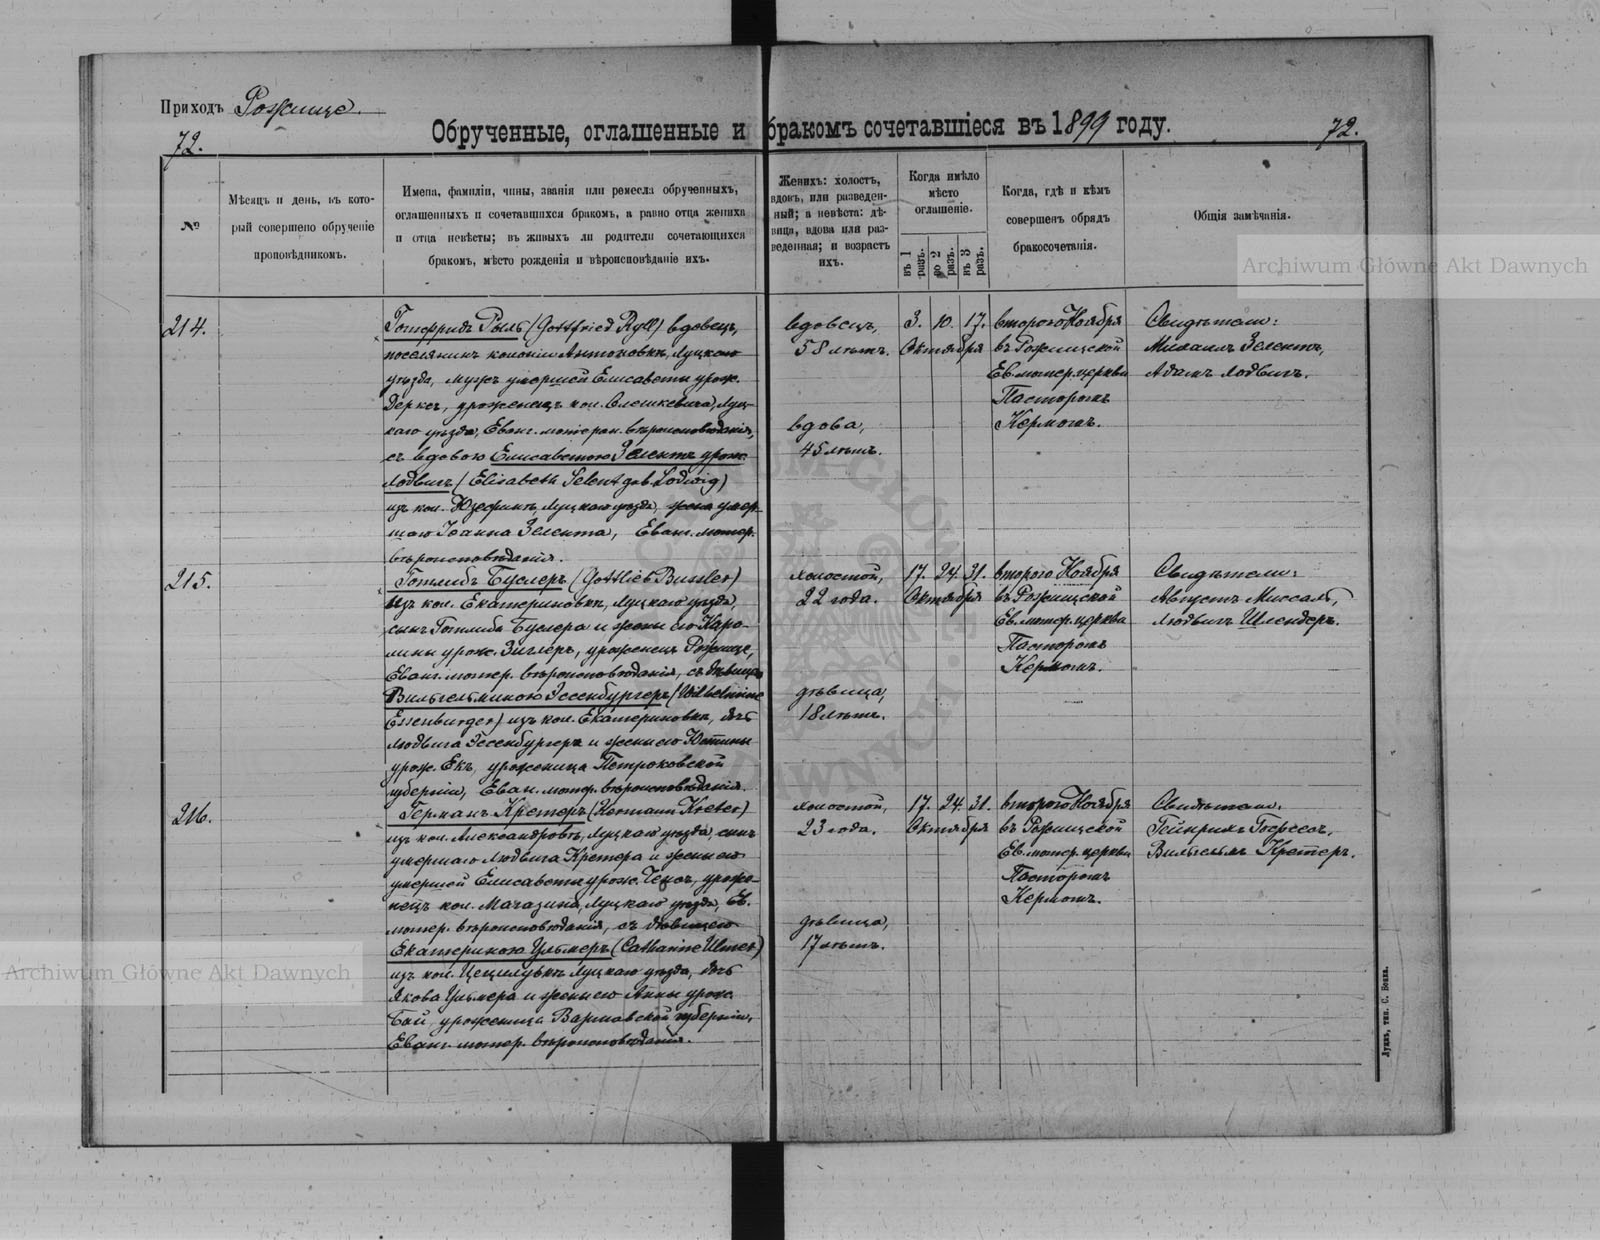 Приходъ Рожище.
72.
Обрученные, оглашенные и бракомъ сочетавшіеся въ 1899 году.
72.
№
Мѣсяцъ и день, въ кото-
рый совершено обрученіе
проповѣдникомъ.
Имена, фамиліи, чины, званія или ремесла обрученныхъ,
оглашенныхъ и сочетавшихся бракомъ, а равно отца жениха
и отца невѣсты; въ живыхъ ли родители сочетающихся
бракомъ, мѣсто рожденія и вѣроисповѣданіе ихъ.
Женихъ: холостъ,
вдовъ, или разведен-
ный; а невѣста: дѣ-
вица, вдова или раз-
веденная; и возрастъ
ихъ.
Когда имѣло
мѣсто
оглашеніе.
въ 1 разъ.
во 2 разъ.
въ 3 разъ.
Когда, гдѣ и кѣмъ
совершенъ обрядъ
бракосочетанія.
Общія замѣчанія.
214.
Готфридъ Рыль (Gottfried Ryll) вдовецъ,
поселянинъ колоніи Антоновки, Луцкаго
уѣзда, мужъ умершей Елисаветы урож.
Дерке, уроженецъ кол. Олешкевича, Луц-
каго уѣзда, Еванг. лютеран. вѣроисповѣданія,
съ вдовою Елисаветою Зелентъ урож.
Лодвигъ (Elisabeth Selent geb. Lodwig)
изъ кол. Юзефинъ, Луцкаго уѣзда, жена умер-
шаго Іоанна Зелента, Еванг. лютер.
вѣроисповѣданія.
вдовецъ,
58 лѣтъ.
вдова,
45 лѣтъ.
3. 10. 17.
Октября
второго Ноября
въ Рожищской
Ев. лютер. церкви
Пасторомъ
Кермомъ.
Свидѣтели:
Михаилъ Зелентъ,
Адамъ Лодвигъ.
215.
Готлибъ Буслеръ (Gottlieb Bussler)
изъ кол. Екатериновки, Луцкаго уѣзда,
сынъ Готлиба Буслера и жены его Каро-
лины урож. Зиглеръ, уроженецъ Рожище,
Еванг. лютер. вѣроисповѣданія, съ дѣвицею
Вильгельминою Эссенбургеръ (Wilhelmine
Essenburger) изъ кол. Екатериновки, дочь
Людвига Эссенбургера и жены его Юстины
урож. Екъ, уроженица Петроковской
губерніи, Еван. лютер. вѣроисповѣданія.
холостой,
22 года.
дѣвица,
18 лѣтъ.
17. 24. 31.
Октября
второго Ноября
въ Рожищской
Ев. лютер. церкви
Пасторомъ
Кермомъ.
Свидѣтели:
Августъ Миссаль,
Людвигъ Шлендеръ.
216.
Германъ Кретеръ (Hermann Kreter)
изъ кол. Александровки, Луцкаго уѣзда, сынъ
умершаго Людвига Кретера и жены его
умершей Елисаветы урож. уроже-
нецъ кол. Магазина, Луцкаго уѣзда, Ев.
лютер. вѣроисповѣданія, съ дѣвицею
Екатериною Ульмеръ (Catharine Ulmer)
изъ кол. Луцкаго уѣзда, дочь
Якова Ульмера и жены его Анны урож.
Бай, уроженица Варшавской губерніи,
Еванг. лютер. вѣроисповѣданія.
холостой,
23 года.
дѣвица,
17 лѣтъ.
17. 24. 31.
Октября
второго Ноября
въ Рожищской
Ев. лютер. церкви
Пасторомъ
Кермомъ.
Свидѣтели:
Гейнрихъ
Вильгельмъ Кретеръ.
Луцкъ, тип. С. Бокка.
Archiwum Główne Akt Dawnych
Archiwum Główne Akt Dawnych